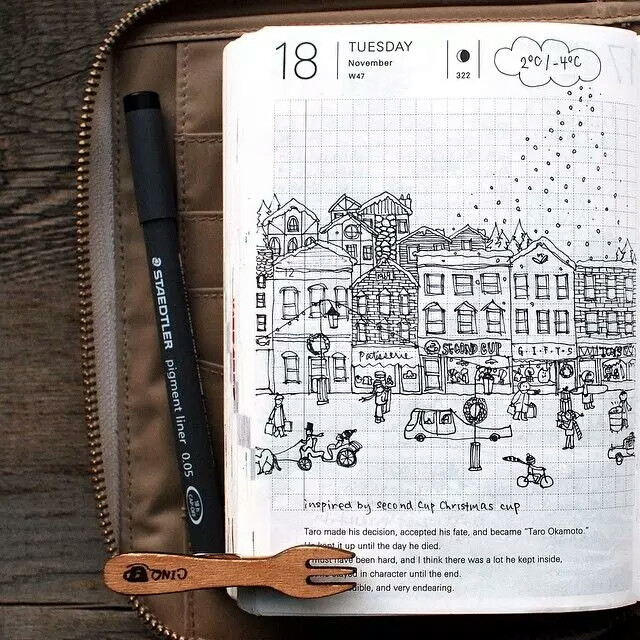 18
TUESDAY
November
W47
322
2°C/-4°C
12
Patisserie
SECOND CUP
G·I·F·T·S
STAEDTLER
pigment liner 0.05
inspired by second cup Christmas cup
Taro made his decision, accepted his fate, and became "Taro Okamoto."
kept it up until the day he died.
must have been hard, and I think there was a lot he kept inside,
stayed in character until the end.
and very endearing.
CINQ